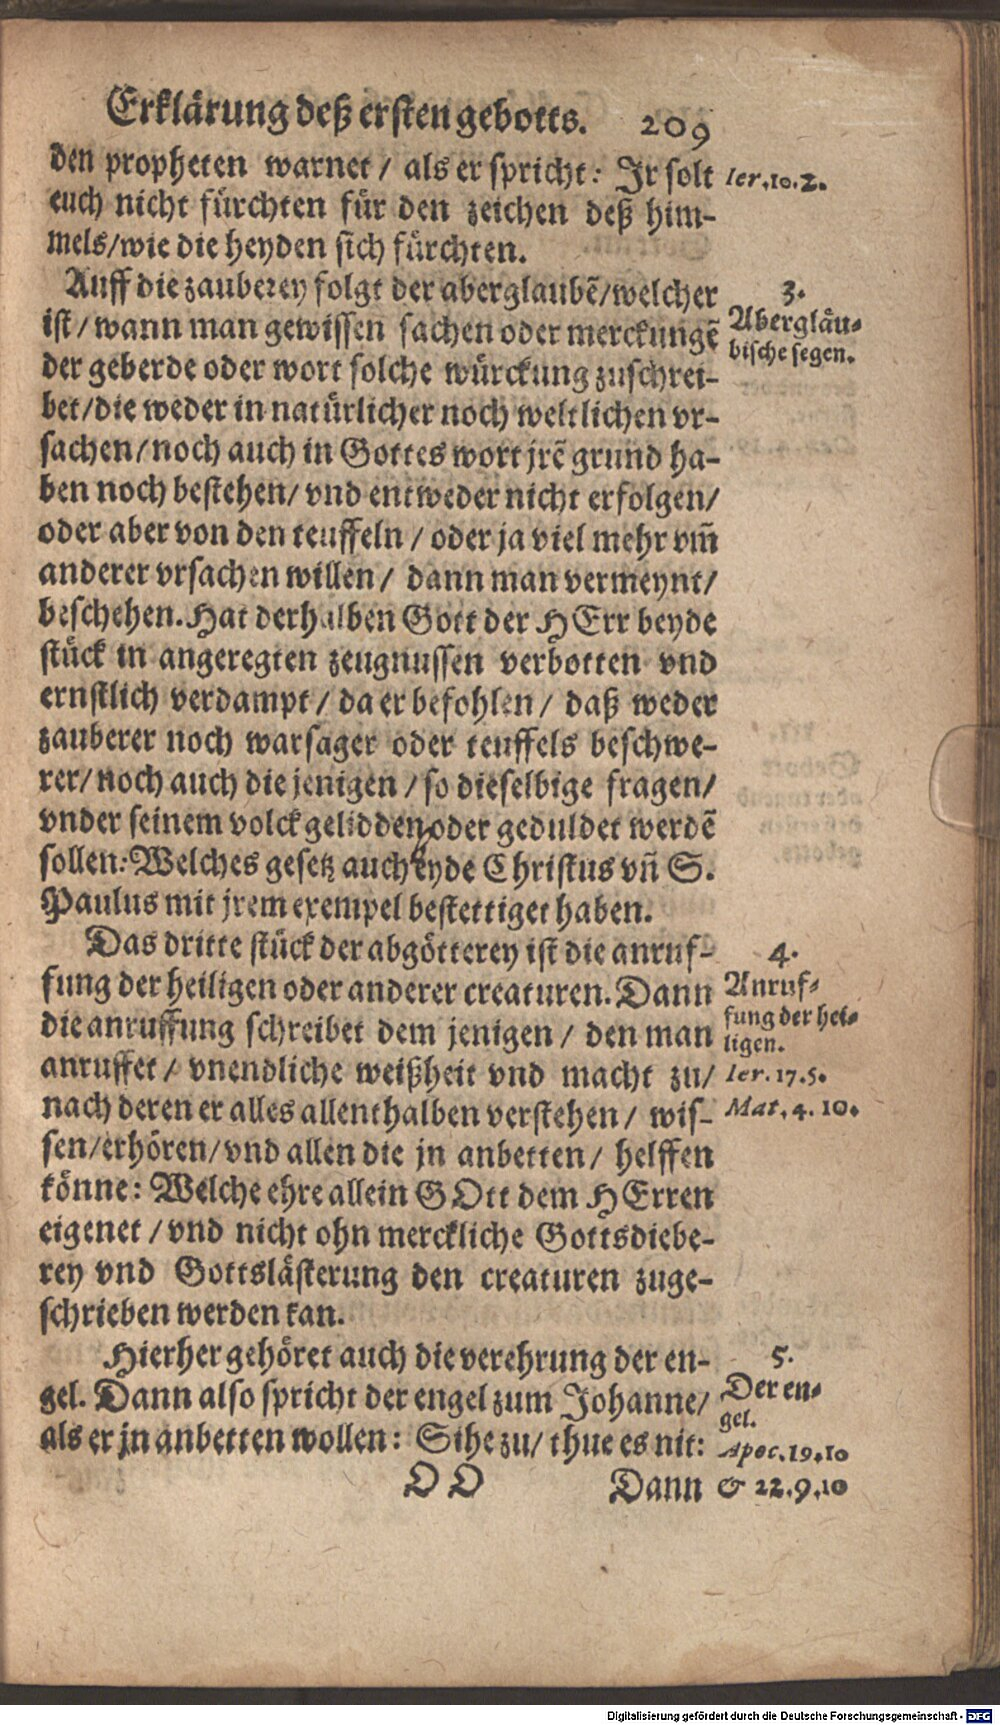 Erklärung deß ersten gebotts. 209
den propheten warnet / als er spricht: Ir solt
Ier. 10. 2.
euch nicht fürchten für den zeichen deß him-
mels/wie die heyden sich fürchten.
Auff die zauberey folgt der aberglaubē/welcher
3.
ist/wann man gewissen sachen oder merckungē
Abergläu-
der geberde oder wort solche würckung zuschrei-
bische segen.
bet/die weder in natürlicher noch weltlichen vr-
sachen/noch auch in Gottes wort jrē grund ha-
ben noch bestehen/ vnd entweder nicht erfolgen/
oder aber von den teuffeln / oder ja viel mehr vm̄
anderer vrsachen willen/ dann man vermeynt/
beschehen. Hat derhalben Gott der HErr beyde
stück in angeregten zeugnussen verbotten vnd
ernstlich verdampt / da er befohlen / daß weder
zauberer noch warsager oder teuffels beschwe-
rer/noch auch die jenigen / so dieselbige fragen/
vnder seinem volck gelidden oder geduldet werdē
sollen: Welches gesetz auch beyde Christus vn̄ S.
Paulus mit jrem exempel bestettiget haben.
Das dritte stück der abgötterey ist die anruf-
4.
fung der heiligen oder anderer creaturen. Dann
Anruf-
die anruffung schreibet dem jenigen / den man
fung der hei-
ligen.
anruffet / vnendliche weißheit vnd macht zu/
Ier. 17. 5.
nach deren er alles allenthalben verstehen / wis-
Mat. 4. 10.
sen/erhören/vnd allen die jn anbetten / helffen
könne: Welche ehre allein GOtt dem HErren
eigenet / vnd nicht ohn merckliche Gottsdiebe-
rey vnd Gottslästerung den creaturen zuge-
schrieben werden kan.
Hierher gehöret auch die verehrung der en-
5.
gel. Dann also spricht der engel zum Johanne/
Der en-
gel.
als er jn anbetten wollen: Sihe zu/ thue es nit:
Apoc. 19. 10
OO Dann
& 22. 9. 10
Digitalisierung gefördert durch die Deutsche Forschungsgemeinschaft - DFG